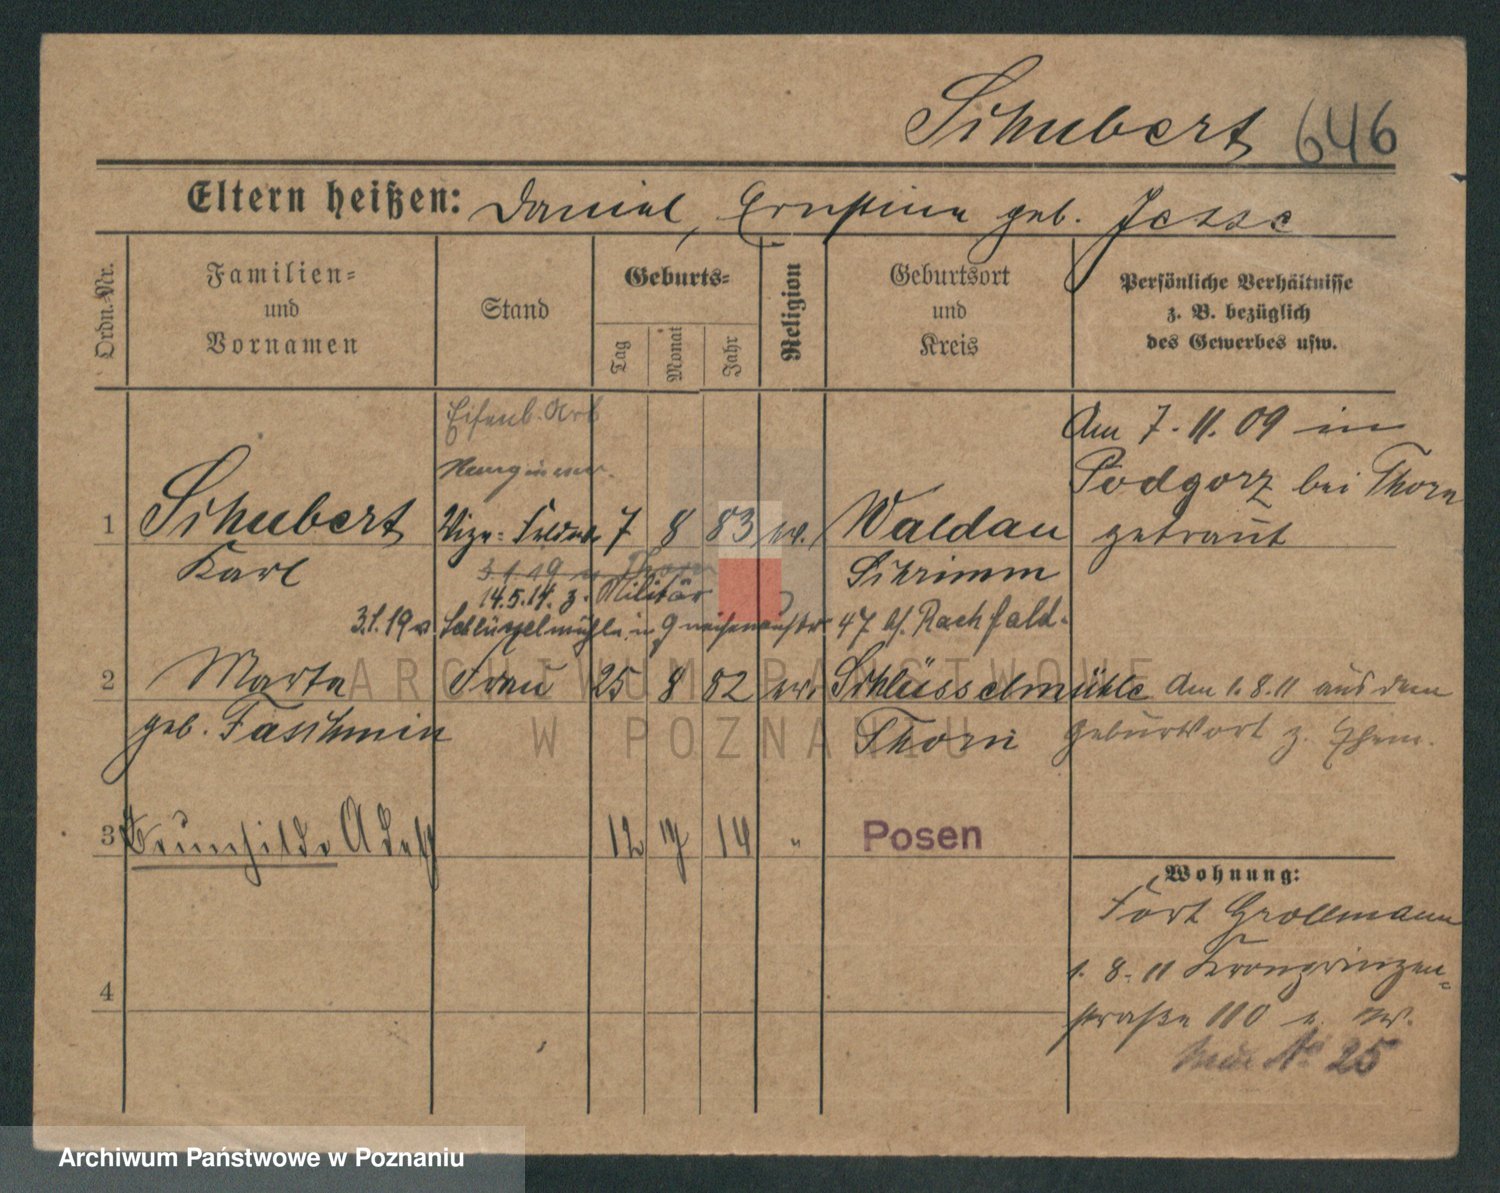 Schubert 646
Eltern heißen: Daniel, Ernstine geb. Jesse
Ordn.-Nr.
Familien-
und
Vornamen
Stand
Geburts-
Tag
Monat
Jahr
Religion
Geburtsort
und
Kreis
Persönliche Verhältnisse
z. B. bezüglich
des Gewerbes usw.
Eisenb. Arb
1 Schubert Vize-Feldw. 7 8 83 ev. Waldau
Karl
Schrimm
Am 7.11.09 in
Podgorz bei Thorn
getraut
3.1.19 n Thorn
14.5.14. z. Militär
3.1.19 v Schlüsselmühle n Gneisenaustr 47 b/. Rachfald.
2 Marta Frau 25 8 82 ev. Schlüsselmühle
geb. Faschmin
Thorn
Am 1.8.11 aus dem
Geburtsort z. Ehem.
3 Brunhilde Adel 12 7 14 " Posen
Wohnung:
Fort Grollmann
1.8.11 Kronprinzen-
straße 110 b. W.
neue No 25
4
ARCHIWUM PAŃSTWOWE
W POZNANIU
Archiwum Państwowe w Poznaniu